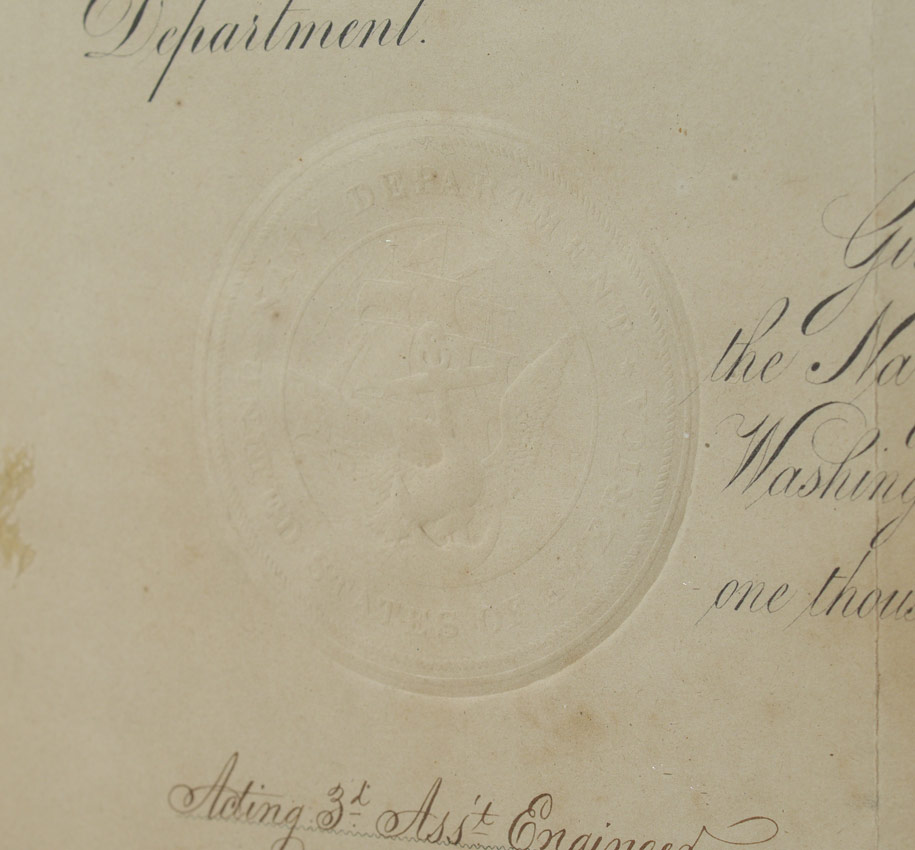 Department.
NAVY DEPARTMENT
UNITED STATES OF AMERICA
the
one
Acting 3d Ass't Engineer